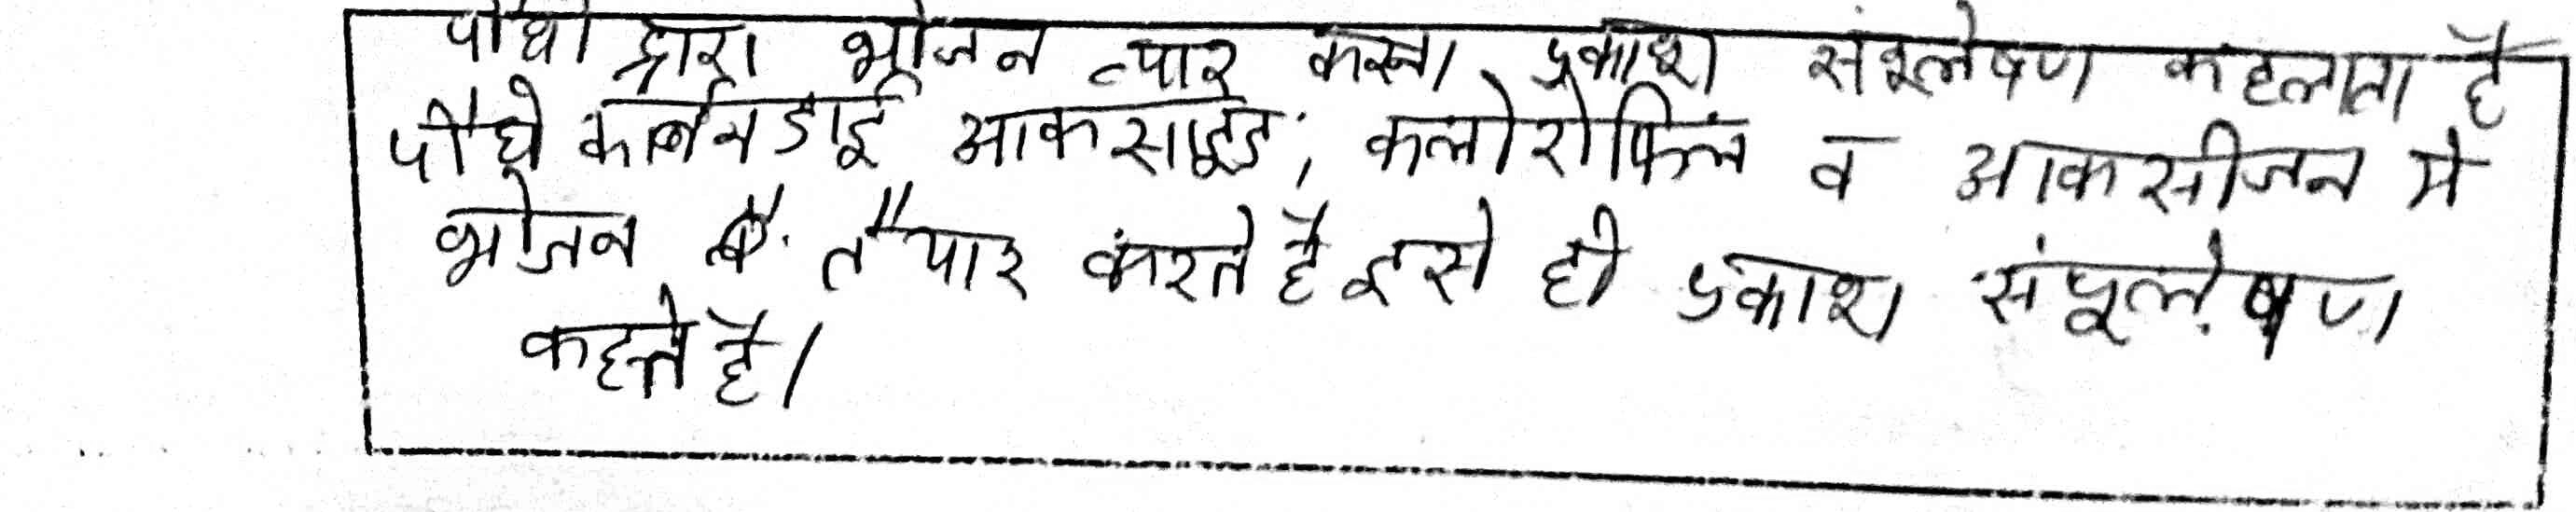 पौधो द्वारा भोजन त्यार करना प्रकाश संश्लेषण कहलाता है
पौधे कार्बनडाई आकसाइड, कलोरोफिल व आकसीजन मे
भोजन तैयार करते है इसे ही प्रकाश संश्लेषण
कहते है।